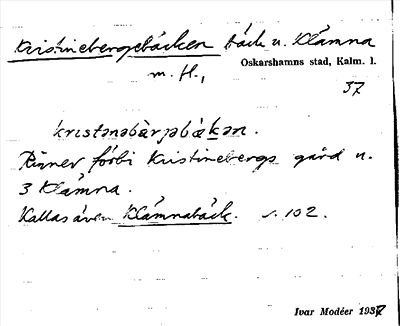 Kristinebergsbäcken bäck u. Klämna
m. fl.,
Oskarshamns stad, Kalm. l.
37
kristənəbàrjəbäkən.
Rinner förbi Kristinebergs gård u.
3 Klämna.
Kallas även Klämnabäck. s. 102.
Ivar Modéer 1937